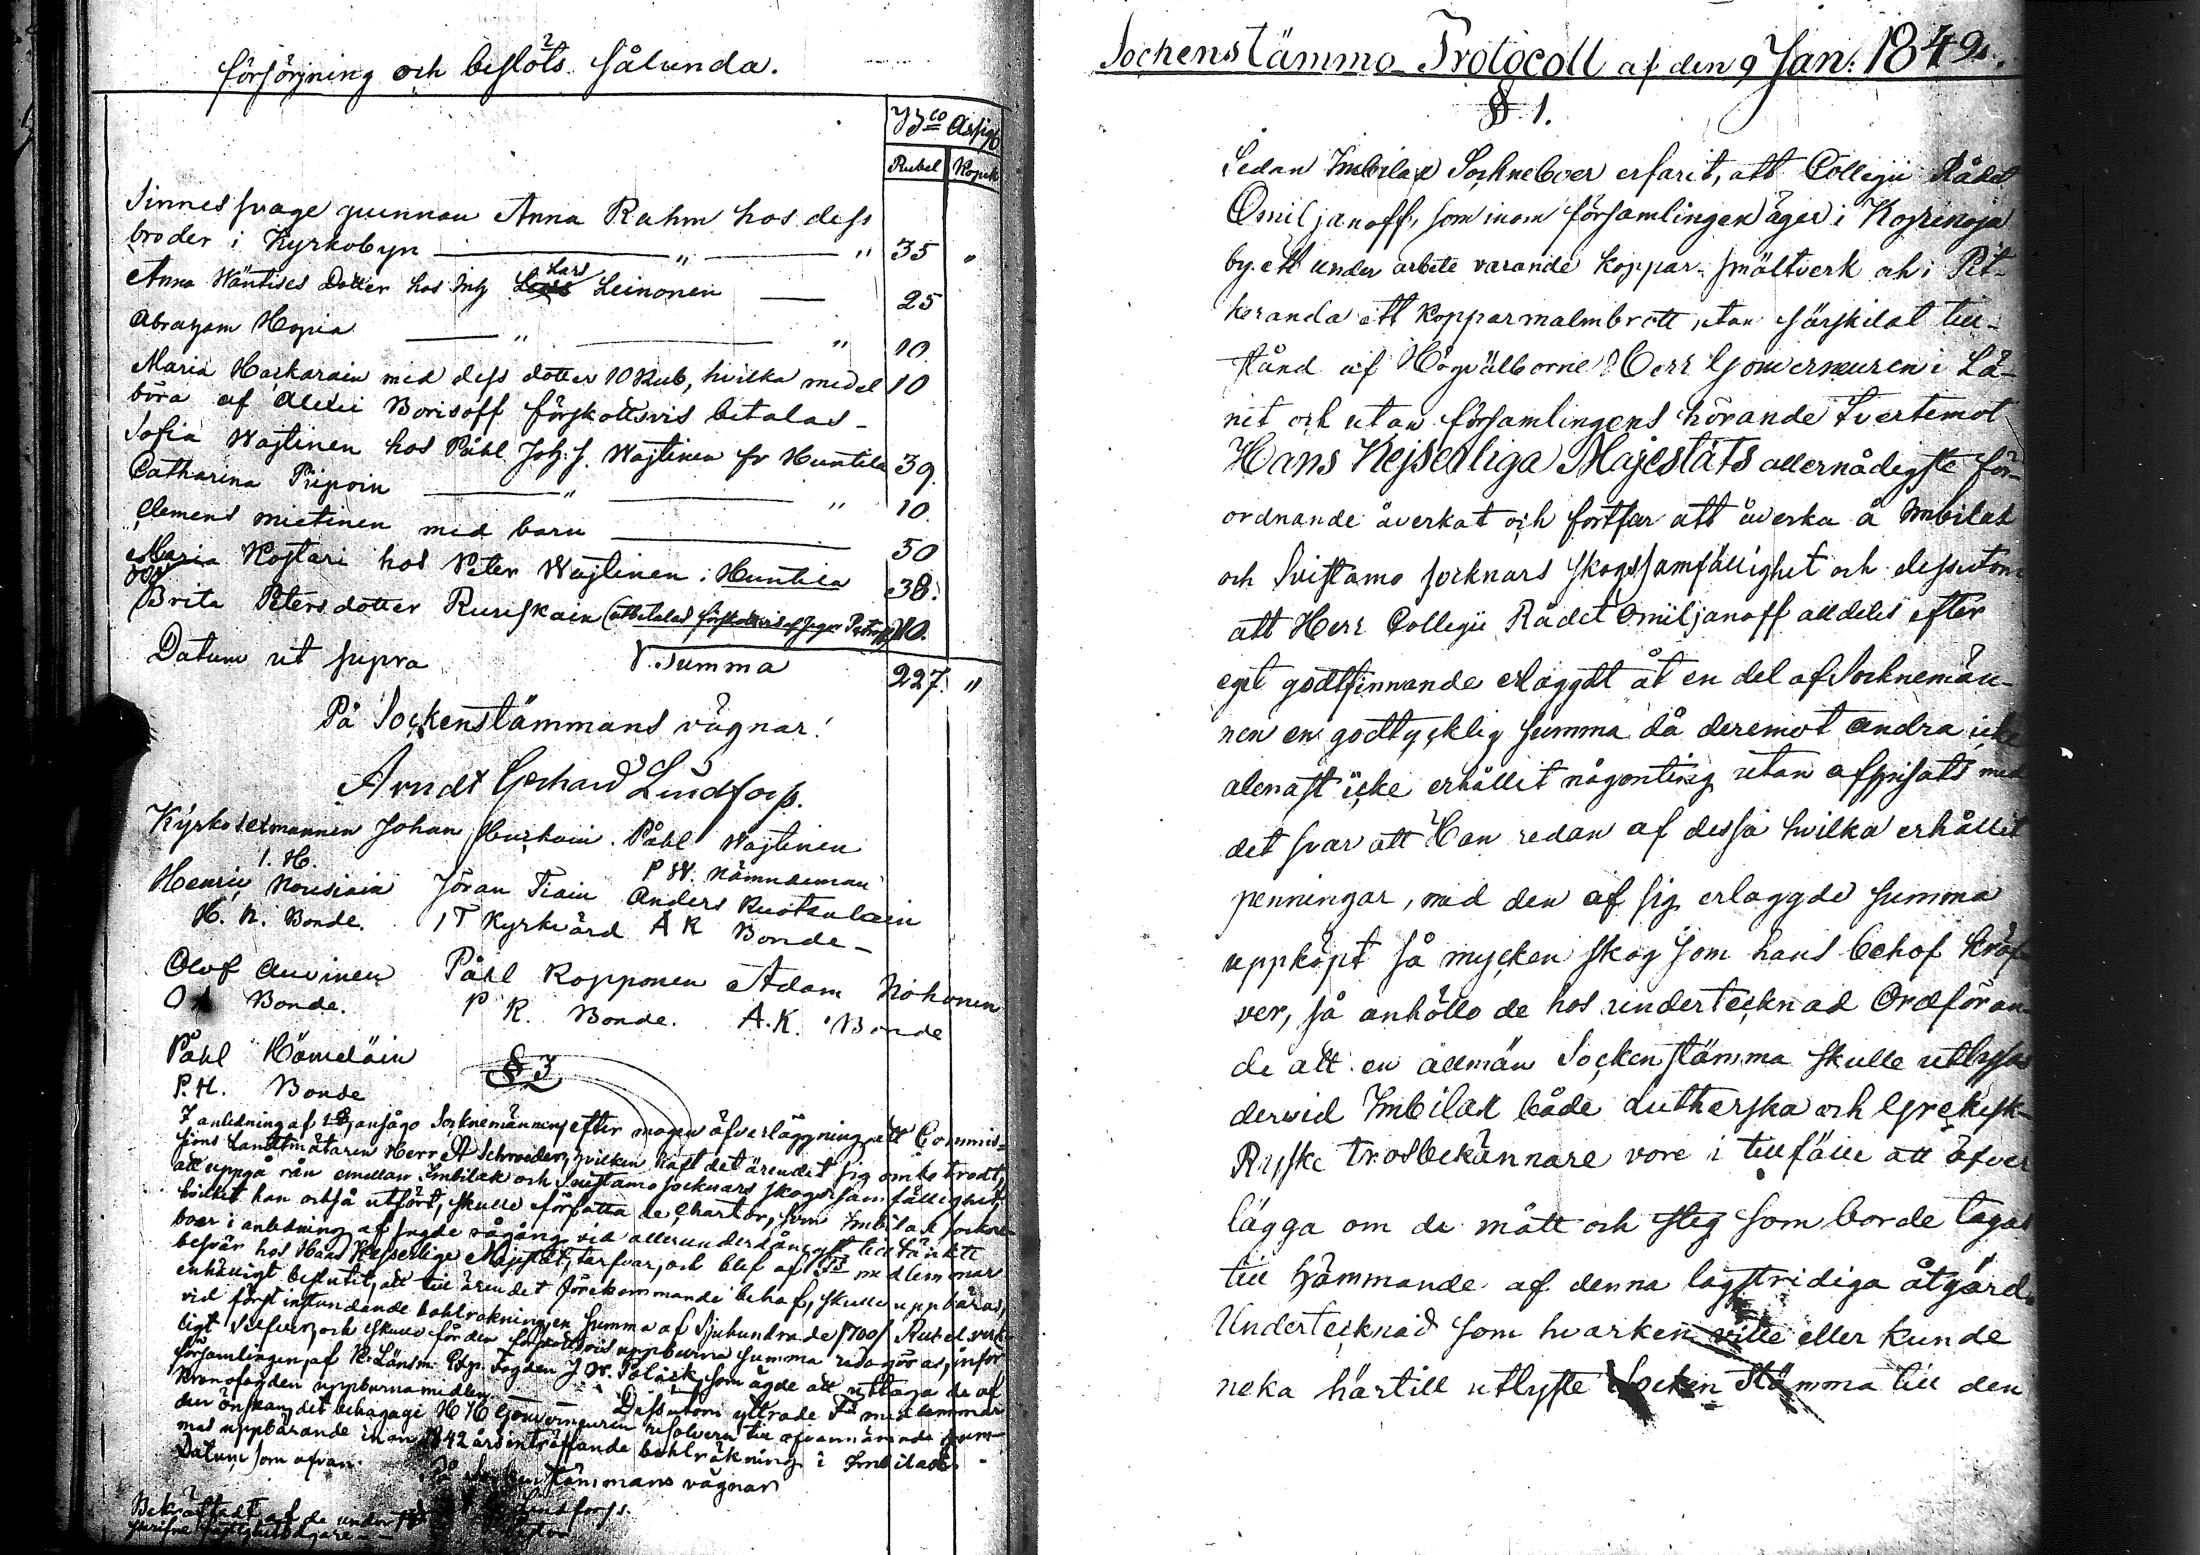 försörjning och beslöts sålunda.
Bco Assign
Rubel Kopek
Sinnessvage qvinnan Anna Rahm hos dess
broder i Kyrkobyn — " — " 35 "
Anna Mäntises Dotter hos Inh Lars Leinonen — 25
Abraham Hopia — " — " 10.
Maria Haskarain med dess dotter 10 Rub, hvilka medel 10
böra af Alexei Borisoff förskottsvis betalas -
Sofia Wajtinen hos Påhl Joh: J. Wajtinen fr Huntila 39.
Catharina Piipoin — " — " 10.
Clemens mietinen med barn — 50
Maria Kostari hos Peter Wajtinen i Huntila 38.
och
Brita Petersdotter Ruuskain (utbetalas förskottsvis af 10.
Datum ut supra Summa 227. "
På Sockenstämmans vägnar:
Arndt Gerhard Lindforss.
Kyrkosexmannen Johan Hurskain. Påhl Wajtinen
I. H. P W. Nämndeman
Henric Nousiain Jöran Tiain Anders Ruotsalain
H. N. Bonde. I T Kyrkvärd A R Bonde -
Olof Auvinen Påhl Kopponen Adam Kohonen
O A Bonde. P K. Bonde. A. K. Bonde
Påhl Hämeläin
P. H. Bonde
§ 3
I anledning af ansågo Socknemännerne efter mogen öfverläggning att Commis-
sions Landtmätaren Herr A Schroeder, hvilken haft det ärendet sig ombetrodt,
att uppgå rån emellan Imbilax och Suistamo socknars skogssamfällighet,
hvilket han också utfört, skulle författa de Chartor, som Imbilax sockne-
boer i anledning af sagde rågång vid allerunderdånigst tilltänkte
besvär hos Hans Kejserlige Majestät, tarfvar, och blef af Stämmedlemmar
enhälligt beslutit, att till ärendet förekommande behof, skulle uppbäras,
vid först instundande bohlräkning, en summa af Sjuhundrade [700] Rubel verk-
ligt Silfver, och skulle för den förskottsvis uppburna summa redogöras, inför
församlingen, af K. Länsm. Exp. Fogden J W. Polack, som ägde att uttaga de af
Kronofogden uppburna midlen. — Dessutom yttrade Stämmedlemmar
den önskan, det behagade H H Gouverneuren resolvera till ofvannämnde sum-
mas uppbärande innan 1842 års inträffande bohlräkning i Imbilax.
Datum som ofvan. På Sockenstämmans vägnar
Lindforss.
Bekräftadt af de under
Sochenstämmo-Protocoll af den 9 Jan: 1842.
§ 1.
Sedan Imbilax Sockneboer erfarit, att Collegii Rådet
Omiljanoff, som inom församlingen äger i Koirinoja
by ett under arbete varande koppar-smältverk och i Pit-
keranda ett kopparmalmbrott, utan särskildt till-
stånd af Högvälborne Herr Gouverneuren i Lä-
net och utan församlingens hörande tvertemot
Hans Kejserliga Majestäts allernådigste för-
ordnande åverkat och fortfar att åverka å Imbilax
och Suistamo socknars skogssamfällighet och dessutom
att Herr Collegii Rådet Omiljanoff alldeles efter
eget godtfinnande erlaggdt åt en del af Socknemän-
nen en godtycklig summa då deremot andra icke
alenast icke erhållit någonting utan afspisats med
det svar att Han redan af dessa hvilka erhållit
penningar, med den af sig erlaggde summa
uppköpt så mycken skog som hans behof kräf-
ver, så anhöllo de hos undertecknad Ordföran-
de att en allmän Sockenstämma skulle utlysas
dervid Imbilax både Lutherska och Grekisk-
Ryska trosbekännare vore i tillfälle att öfver
lägga om de mått och steg som borde tagas
till hämmande af denna lagstridiga åtgärd.
Undertecknad som hvarken ville eller kunde
neka härtill utlyste Socken Stämma till den